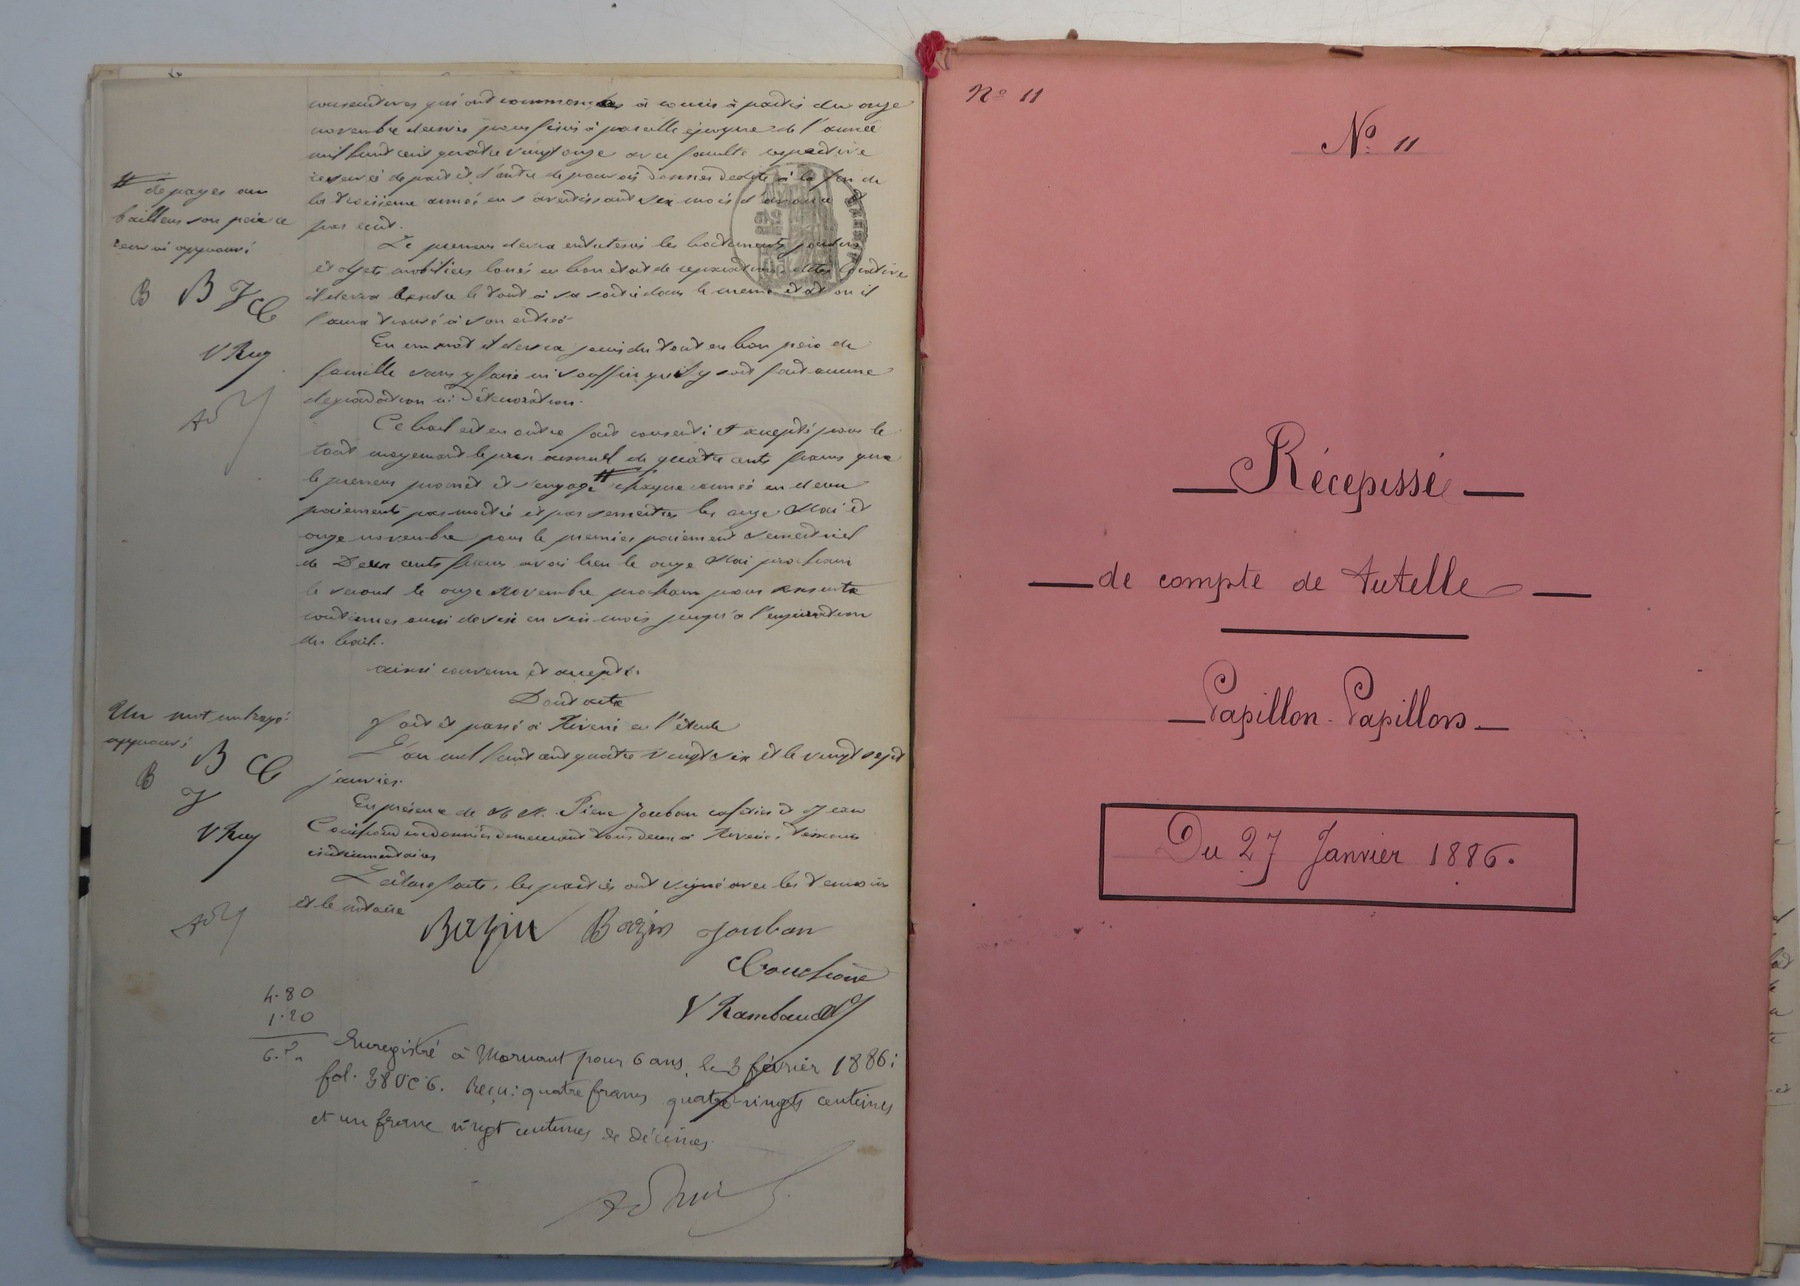 consecutives qui ont commencées à courir à partir du onze
novembre dernier pour finir à pareille époque de l'année
mil huit cent quatre vingt onze avec faculté respective
réservée de part et d'autre de pouvoir donner dédite à la fin de
la troisième année en s'avertissant six mois d'avance et
par écrit.
Le preneur devra entretenir les batiments
et objets mobiliers loués en bon état de réparations dites locatives
il devra rendre le tout à sa sortie dans le même état ou il
l'aura trouvé à son entrée
En un mot il devra jouir du tout en bon père de
famille sans y faire ni souffrir qu'il y soit fait aucune
dégradation ni détérioration.
Ce bail est en outre fait consenti et accepté pour le
tout moyennant le prix annuel de quatre cents francs que
le preneur promet et s'engage # chaque année en deux
paiements par moitié et par semestre les onze Mai et
onze novembre pour le premier paiement semestriel
de Deux cents francs avoir lieu le onze Mai prochain
le second le onze Novembre prochain pour ensuite
continuer ainsi de six en six mois jusqu'à l'expiration
du bail.
ainsi convenu et accepté.
Dont acte
fait et passé à Riverie en l'étude
L'an mil huit cent quatre vingt six et le vingt sept
janvier.
En présence de M M. Pierre Jouban cafetier et Jean
demeurant tous deux à Riverie, témoins
instrumentaires
Lecture faite, les parties ont signé avec les témoins
et le notaire
# de payer au
bailleur son père ce
renvoi approuvé
B B J C
V Ray
Un mot rayé
approuvé
B B C
J
V Ray
Bazin Bazin Jouban
V Rambaud
4.80
1.20
6. "
Enregistré à Mornant pour 6 ans, le 3 février 1886;
fol. 38 Vo C 6. Reçu: quatre francs quatre vingts centimes
et un franc vingt centimes de décimes.
No 11
No. 11
Récépissé
de compte de Tutelle
Papillon - Papillon
Du 27 Janvier 1886.